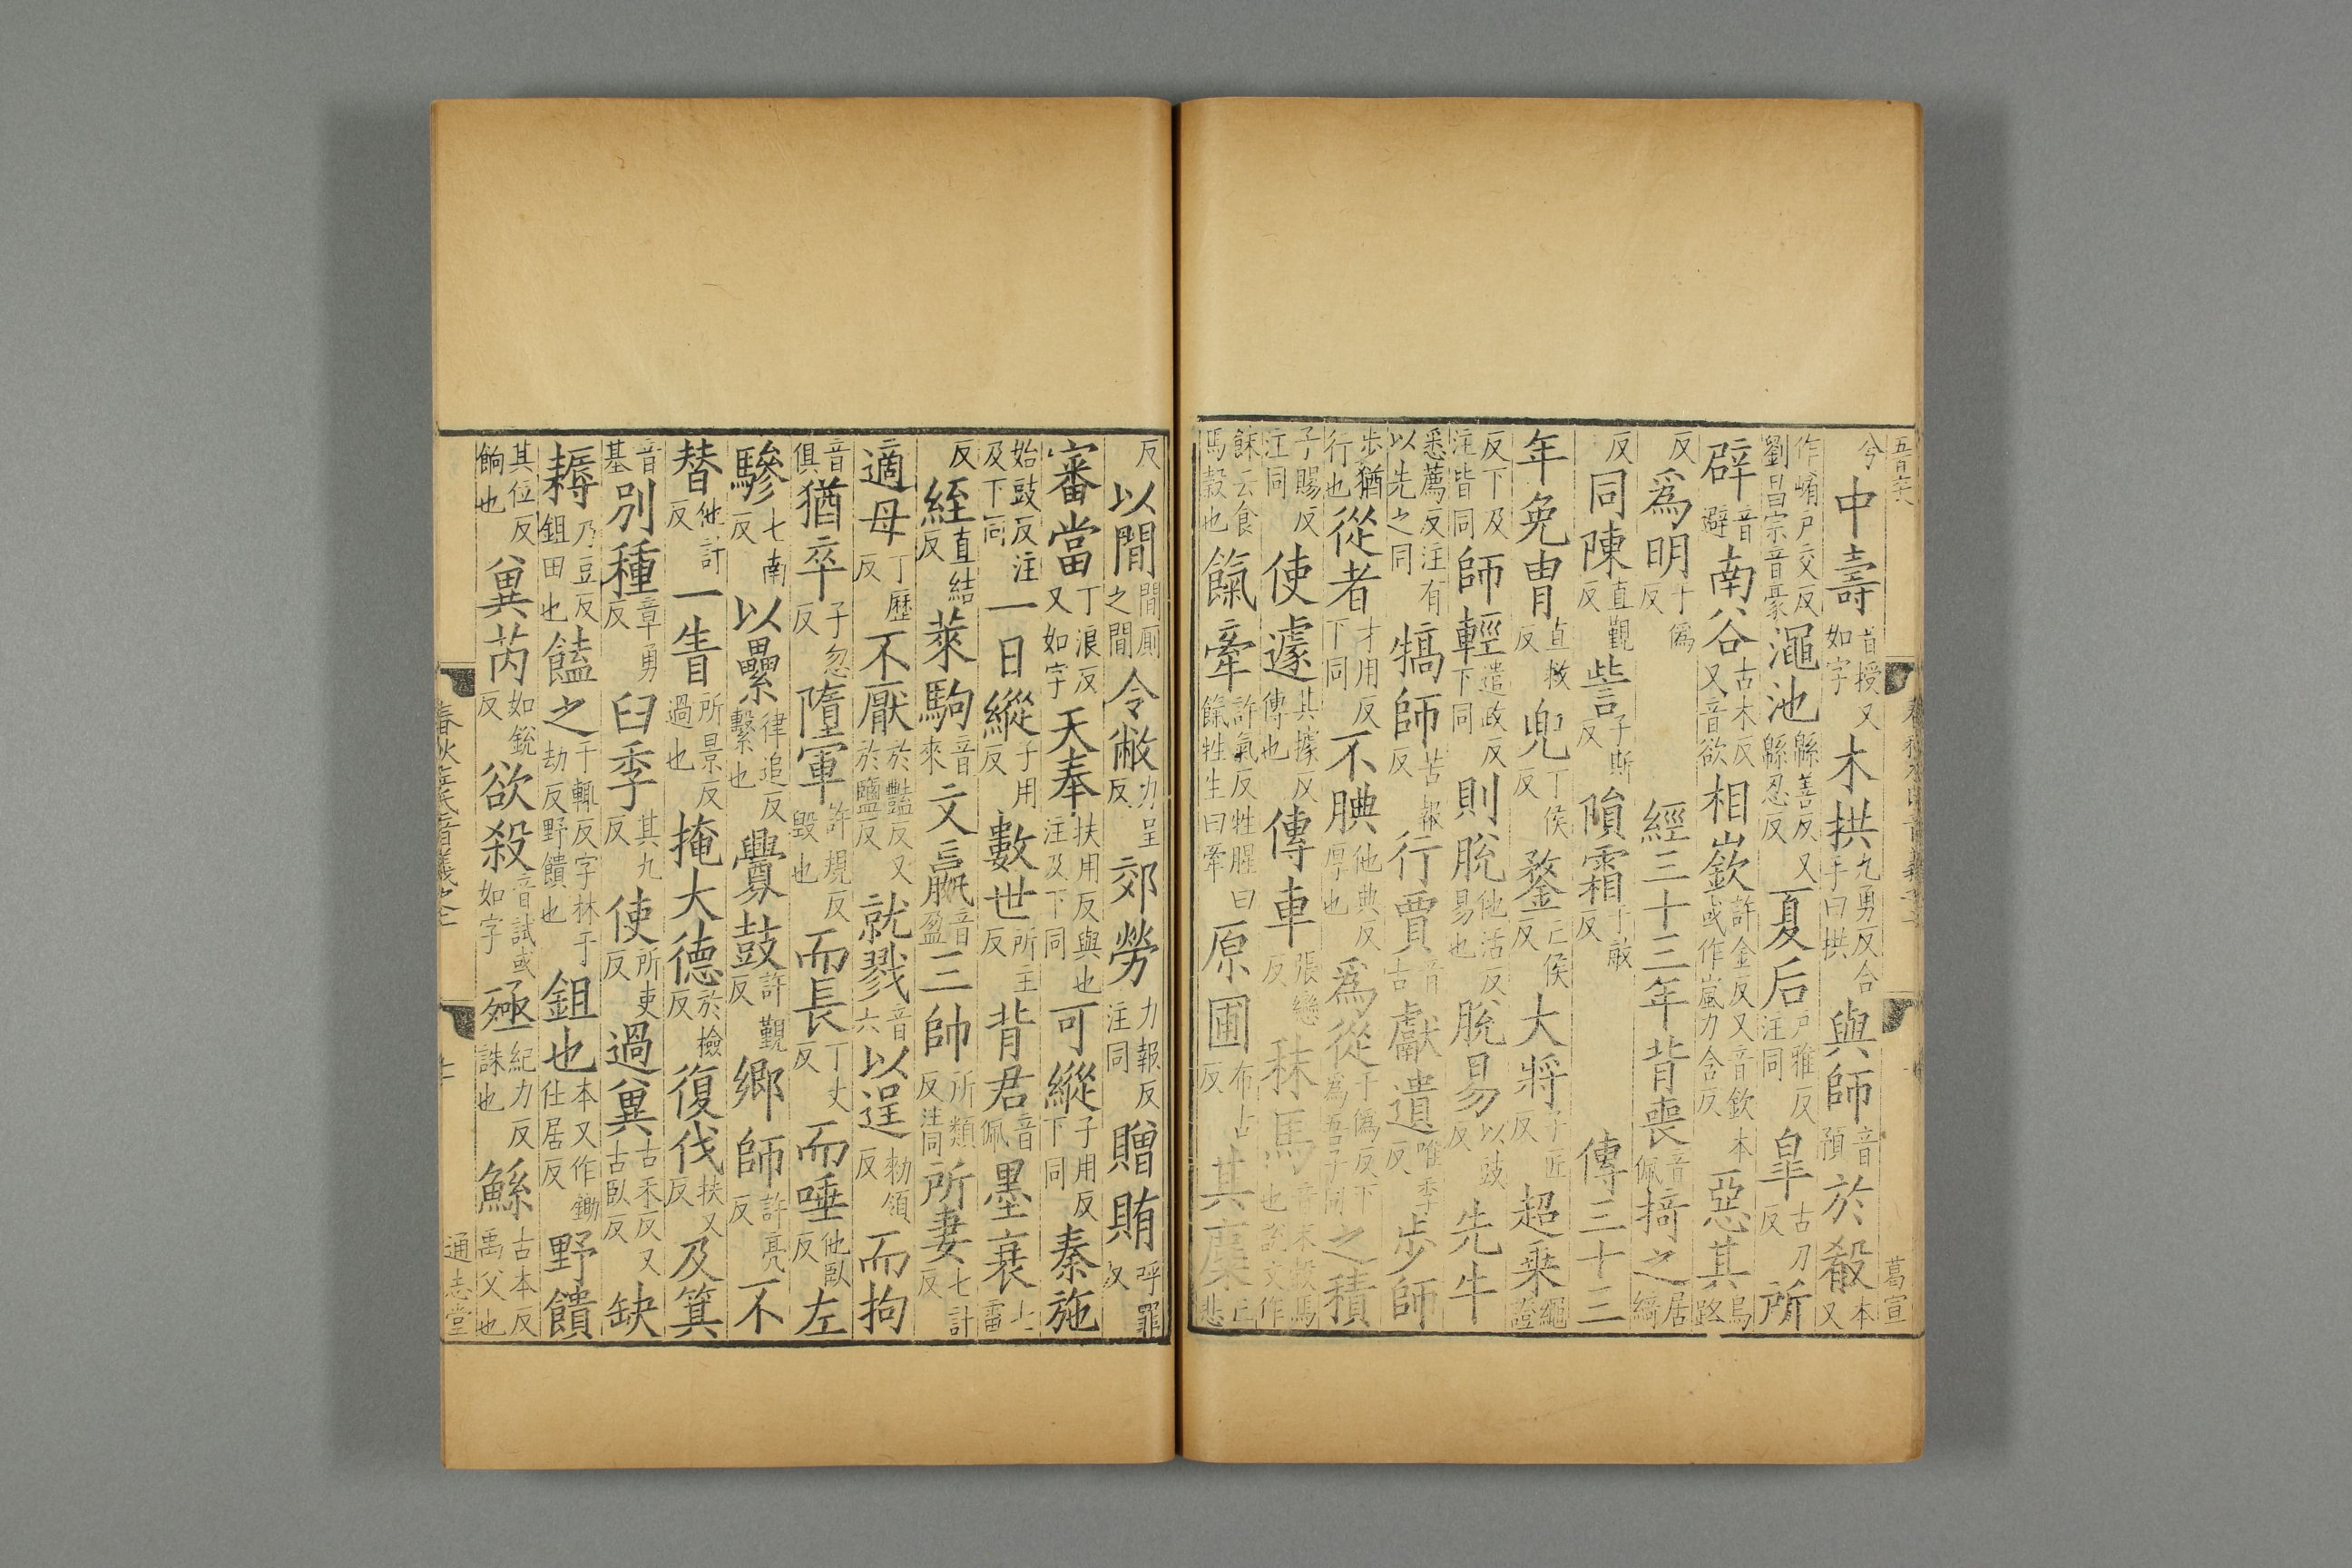 中壽音授又如字木拱九勇反合手曰拱與師音預於殽本又
作崤戶交反劉昌宗音豪澠池緜善反又緜忍反夏后戶雅反注同皐古刀反所
辟音避南谷古木反又音欲相嶔許金反又音欽本或作嵐力含反惡其烏路
反爲明于僞反經三十三年背喪音佩掎之居綺
反同陳直覲反訾子斯反隕霜于敏反傳三十三
年免冑直救反兜丁侯反鍪亡侯反大將子匠反超乘繩證
反下及注皆同師輕遣政反下同則脫他活反易也脫易以豉反先牛
悉薦反注有以先之同犒師苦報反行賈音古獻遺唯季反步師
步猶行也從者才用反下同不腆他典反厚也爲從于僞反下爲吾子同之積
子賜反注同使遽其據反傳也傳車張戀反秣馬音末穀馬也說文作
䬴云食馬穀也餼牽許氣反牲腥曰餼牲生曰牽原圃布古反其麋亡悲
反以閒閒廁之閒令敝力呈反郊勞力報反注同贈賄呼罪反
審當丁浪反又如字天奉扶用反與也注及下同可縱子用反下同秦施
始豉反注及下同一日縱子用反數世所主反背君音佩墨衰七雷
反絰直結反萊駒音來文嬴音盈三帥所類反注同所妻七計反
適母丁歷反不厭於豔反又於鹽反就戮音六以逞勑領反而拘
音俱猶卒子忽反墮軍許規反毀也而長丁丈反而唾他臥反左
驂七南反以纍律追反繫也釁鼓許覲反鄉師許亮反不
替他計反一眚所景反過也掩大德於檢反復伐扶又反及箕
音基別種章勇反臼季其九反使所吏反過兾古禾反又古臥反缺
耨乃豆反鉏田也饁之于輒反字林于劫反野饋也鉏也本又作鋤仕居反野饋
其位反餉也兾芮如銳反欲殺音試或如字殛紀力反誅也鯀古本反禹父也
通志堂